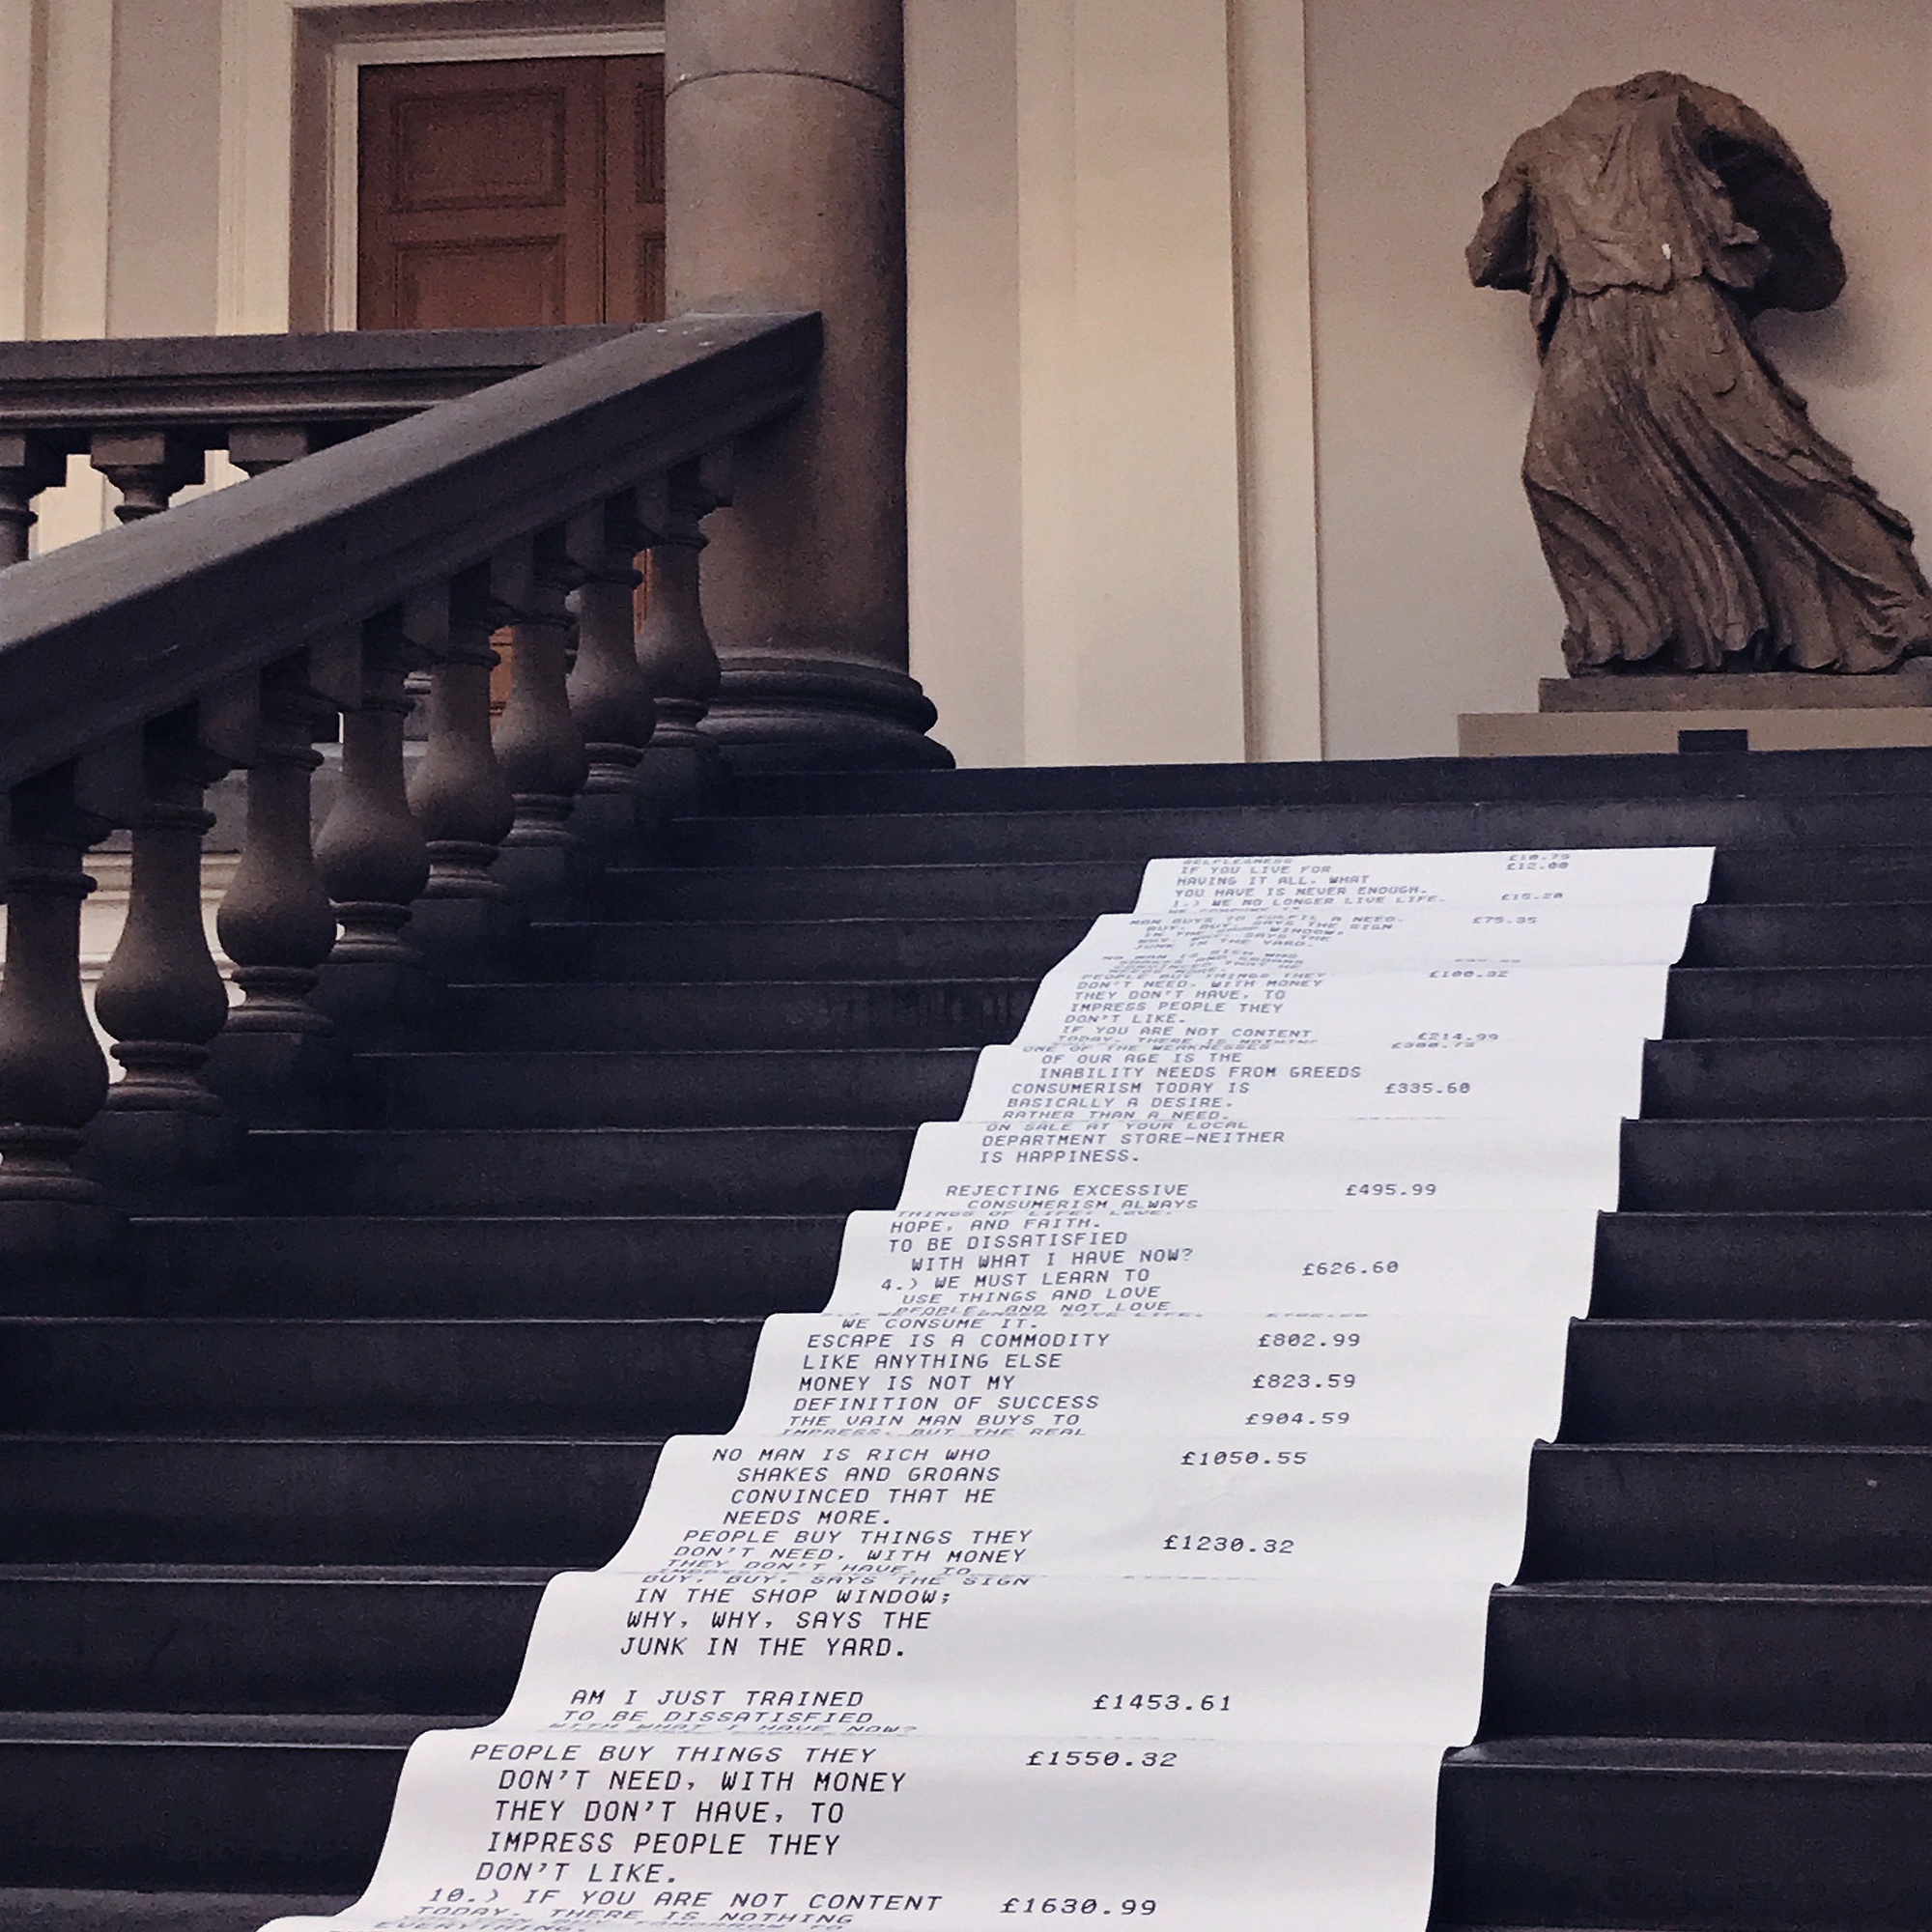 SELFLESSNESS £10.75
IF YOU LIVE FOR £12.00
HAVING IT ALL. WHAT
YOU HAVE IS NEVER ENOUGH.
1.) WE NO LONGER LIVE LIFE. £15.20
WE CONSUME IT.
MAN BUYS TO FULFIL A NEED. £75.35
BUY, BUY, SAYS THE SIGN
IN THE SHOP WINDOW;
WHY, WHY, SAYS THE
JUNK IN THE YARD.
NO MAN IS RICH WHO
SHAKES AND GROANS
CONVINCED THAT HE
NEEDS MORE.
PEOPLE BUY THINGS THEY £100.32
DON'T NEED, WITH MONEY
THEY DON'T HAVE, TO
IMPRESS PEOPLE THEY
DON'T LIKE.
IF YOU ARE NOT CONTENT £214.99
TODAY, THERE IS NOTHING
ONE OF THE WEAKNESSES
OF OUR AGE IS THE
INABILITY NEEDS FROM GREEDS
CONSUMERISM TODAY IS £335.60
BASICALLY A DESIRE,
RATHER THAN A NEED.
ON SALE AT YOUR LOCAL
DEPARTMENT STORE-NEITHER
IS HAPPINESS.
REJECTING EXCESSIVE £495.99
CONSUMERISM ALWAYS
THINGS OF LIFE. LOVE,
HOPE, AND FAITH.
TO BE DISSATISFIED
WITH WHAT I HAVE NOW? £626.60
4.) WE MUST LEARN TO
USE THINGS AND LOVE
PEOPLE, AND NOT LOVE
WE CONSUME IT.
ESCAPE IS A COMMODITY £802.99
LIKE ANYTHING ELSE
MONEY IS NOT MY £823.59
DEFINITION OF SUCCESS
THE VAIN MAN BUYS TO £904.59
IMPRESS, BUT THE REAL
NO MAN IS RICH WHO £1050.55
SHAKES AND GROANS
CONVINCED THAT HE
NEEDS MORE.
PEOPLE BUY THINGS THEY £1230.32
DON'T NEED, WITH MONEY
THEY DON'T HAVE, TO
BUY, BUY, SAYS THE SIGN
IN THE SHOP WINDOW;
WHY, WHY, SAYS THE
JUNK IN THE YARD.
AM I JUST TRAINED £1453.61
TO BE DISSATISFIED
WITH WHAT I HAVE NOW?
PEOPLE BUY THINGS THEY £1550.32
DON'T NEED, WITH MONEY
THEY DON'T HAVE, TO
IMPRESS PEOPLE THEY
DON'T LIKE.
10.) IF YOU ARE NOT CONTENT £1630.99
TODAY, THERE IS NOTHING